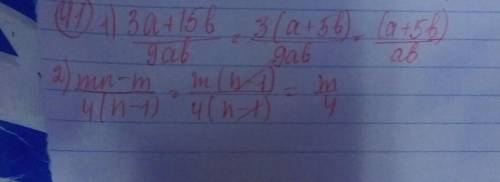 41) 1) 3a+15b/9ab = 3(a+5b)/9ab = (a+5b)/ab
2) mn-m/4(n-1) = m(n-1)/4(n-1) = m/4